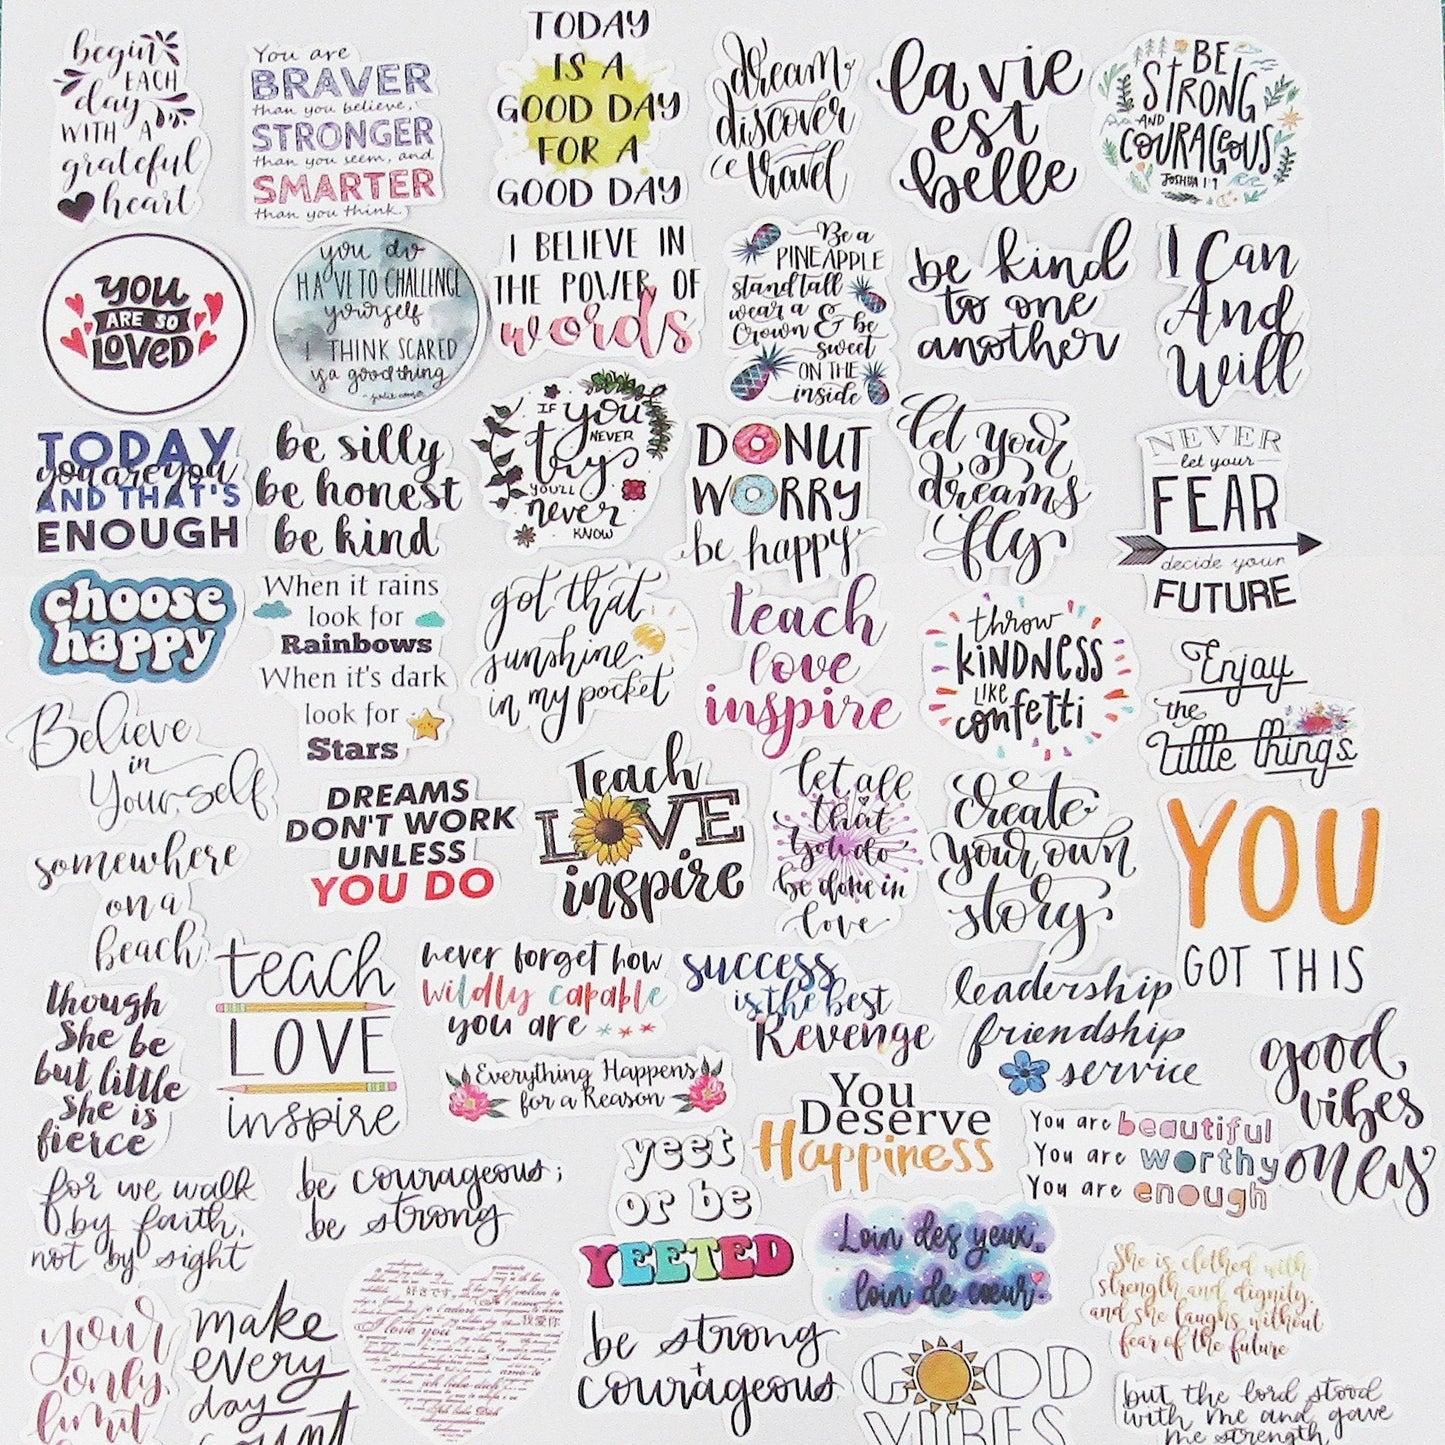 begin
EACH
day
WITH A
grateful
heart
You are
BRAVER
than you believe,
STRONGER
than you seem, and
SMARTER
than you think.
TODAY
IS A
GOOD DAY
FOR A
GOOD DAY
dream
discover
travel
la vie
est
belle
BE
STRONG
AND
COURAGEOUS
JOSHUA 1:9
YOU
ARE SO
LOVED
you do
HAVE TO CHALLENGE
yourself
I THINK SCARED
is a good thing
I BELIEVE IN
THE POWER OF
words
Be a
PINEAPPLE
stand tall
wear a
Crown & be
sweet
ON THE
inside
be kind
to one
another
I Can
And
Will
TODAY
you are you
AND THAT'S
ENOUGH
be silly
be honest
be kind
IF you
NEVER
try
YOU'LL
never
KNOW
DONUT
WORRY
be happy
let your
dreams
fly
NEVER
let your
FEAR
decide your
FUTURE
choose
happy
When it rains
look for
Rainbows
When it's dark
look for
Stars
got that
sunshine
in my pocket
teach
love
inspire
throw
KINDNESS
LIKE
confetti
Enjoy
the
little things
Believe
in
Yourself
DREAMS
DON'T WORK
UNLESS
YOU DO
Teach
LOVE
inspire
let all
that
you do
be done in
love
create
your own
story
YOU
GOT THIS
somewhere
on a
beach
though
She be
but little
She is
fierce
teach
LOVE
inspire
never forget how
wildly capable
you are
success
is the best
Revenge
leadership
friendship
service
good
vibes
only
Everything Happens
for a Reason
You
Deserve
Happiness
You are beautiful
You are worthy
You are enough
for we walk
by faith,
not by sight
be courageous;
be strong
yeet
or be
YEETED
Loin des yeux,
loin de cœur.
She is clothed with
strength and dignity,
and she laughs without
fear of the future
your
only
limit
make
every
day
count
I love you
我爱你
be strong
+
courageous
GOOD
VIBES
but the lord stood
with me and gave
me strength,